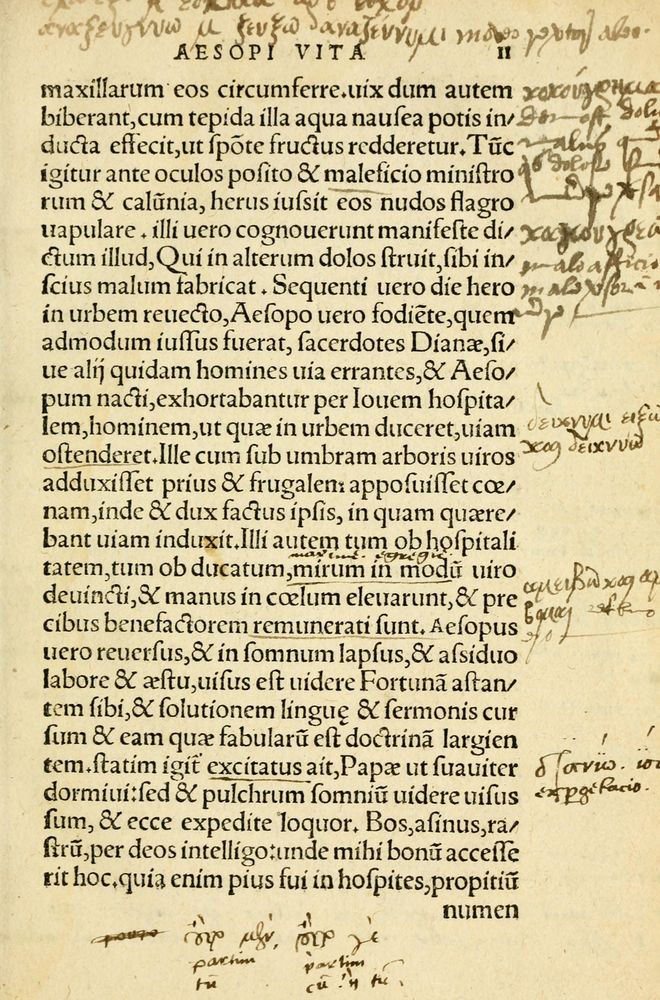 AESOPI VITA 11
maxillarum eos circumferre.uix dum autem
biberant,cum tepida illa aqua nausea potis in/
ducta effecit,ut spõte fructus redderetur.Tũc
igitur ante oculos posito & maleficio ministro
rum & calũnia, herus iussit eos nudos flagro
uapulare . illi uero cognouerunt manifeste di/
ctum illud,Qui in alterum dolos struit,sibi in/
scius malum fabricat . Sequenti uero die hero
in urbem reuecto,Aesopo uero fodiẽte,quem
admodum iussus fuerat, sacerdotes Dianæ,si/
ue alij quidam homines uia errantes,& Aeso/
pum nacti,exhortabantur per Iouem hospita/
lem,hominem,ut quæ in urbem duceret,uiam
ostenderet.Ille cum sub umbram arboris uiros
adduxisset prius & frugalem apposuisset cœ/
nam,inde & dux factus ipsis, in quam quære/
bant uiam induxit.Illi autem tum ob hospitali
tatem,tum ob ducatum,mirum in modũ uiro
deuincti,& manus in cœlum eleuarunt,& pre
cibus benefactorem remunerati sunt. Aesopus
uero reuersus,& in somnum lapsus,& assiduo
labore & æstu,uisus est uidere Fortunã astan/
tem sibi,& solutionem linguę & sermonis cur
sum & eam quæ fabularũ est doctrinã largien
tem.statim igit᷑ excitatus ait,Papæ ut suauiter
dormiui:sed & pulchrum somniũ uidere uisus
sum, & ecce expedite loquor. Bos,asinus,ra/
strũ,per deos intelligo:unde mihi bonũ accesse
rit hoc.quia enim pius fui in hospites,propitiũ
numen
δεικνυμι
και δεικνυω
expergefacio.
partim partim
tũ cũ tũ